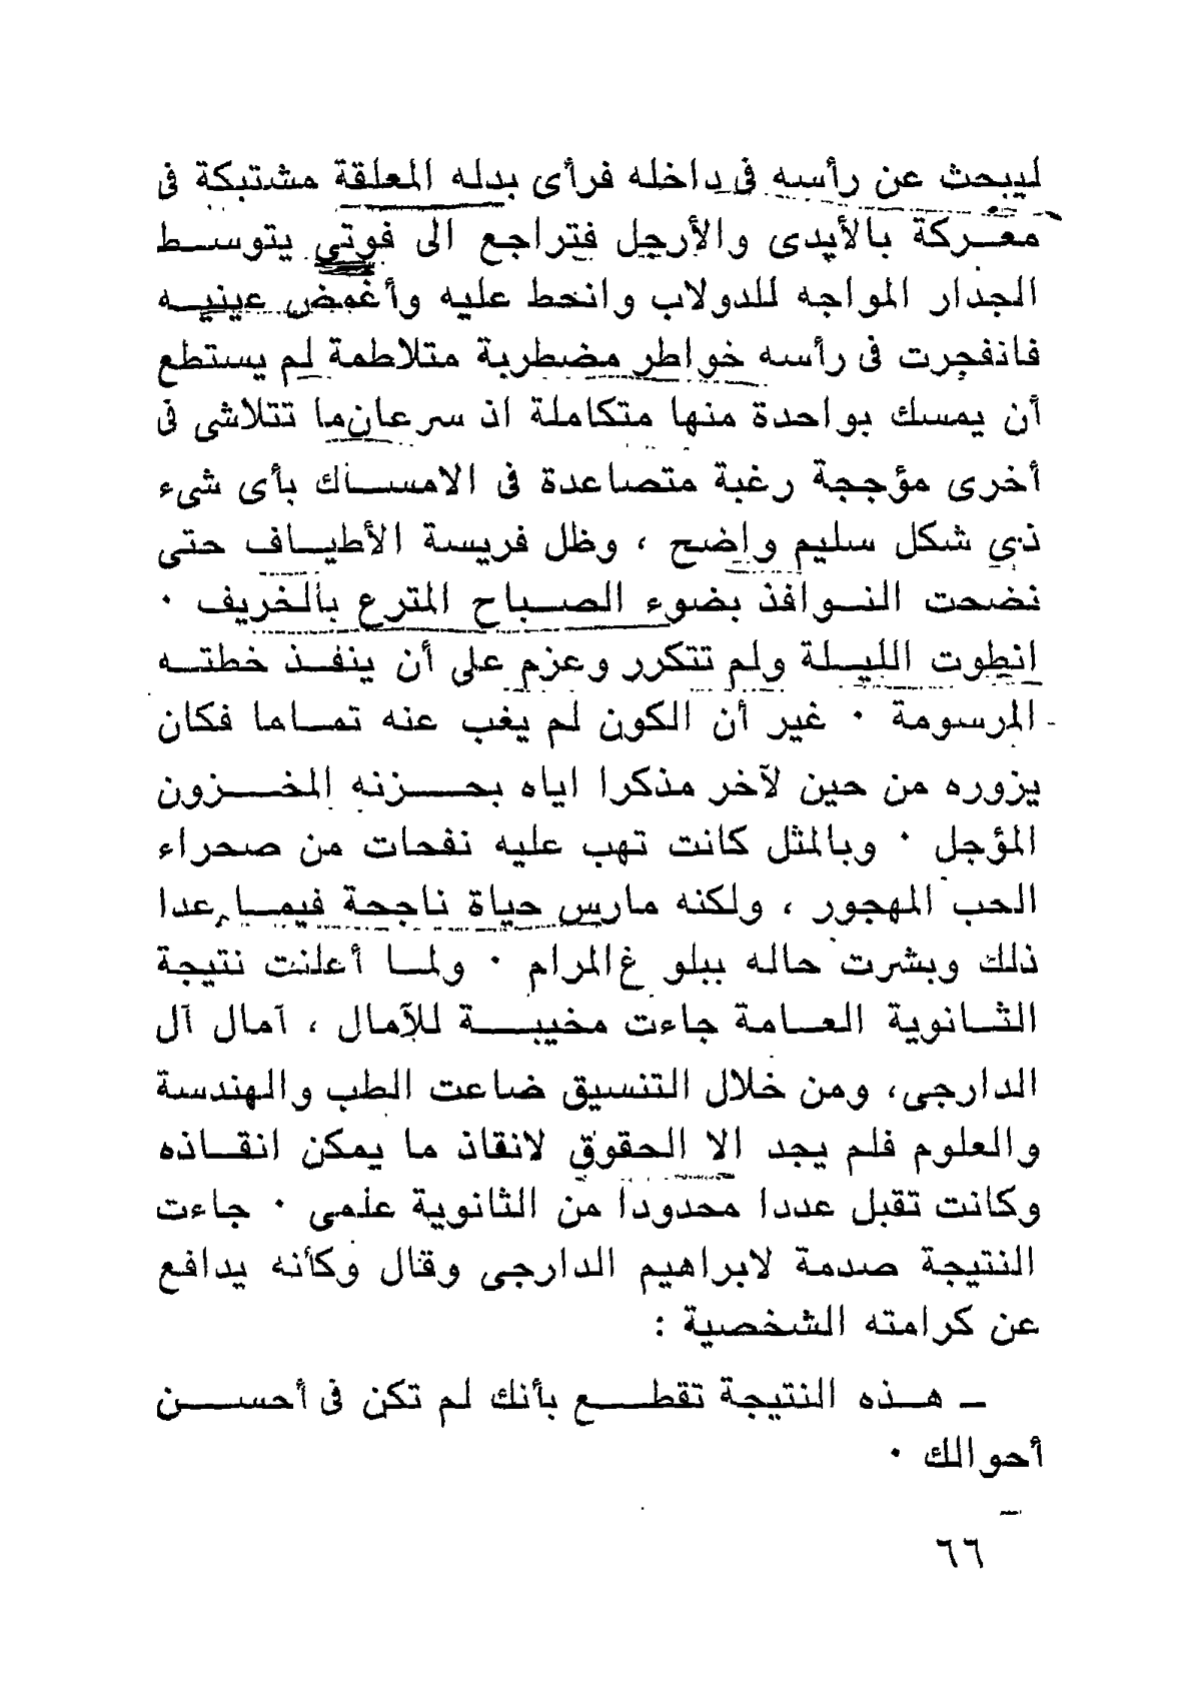 ليبحث عن رأسه فى داخله فرأى بدله المعلقة مشتبكة فى
معركة بالأيدى والأرجل فتراجع الى فوتى يتوسط
الجدار المواجه للدولاب وانحط عليه وأغمض عينيه
فانفجرت فى رأسه خواطر مضطربة متلاطمة لم يستطع
أن يمسك بواحدة منها متكاملة اذ سرعان ما تتلاشى فى
أخرى مؤججة رغبة متصاعدة فى الامساك بأى شىء
ذى شكل سليم واضح ، وظل فريسة الأطياف حتى
نضحت النوافذ بضوء الصباح المترع بالخريف ٠
انطوت الليلة ولم تتكرر وعزم على أن ينفذ خطته
المرسومة ٠ غير أن الكون لم يغب عنه تماما فكان
يزوره من حين لآخر مذكرا اياه بحزنه المخزون
المؤجل ٠ وبالمثل كانت تهب عليه نفحات من صحراء
الحب المهجور ، ولكنه مارس حياة ناجحة فيما عدا
ذلك وبشرت حاله ببلو غ المرام ٠ ولما أعلنت نتيجة
الثانوية العامة جاءت مخيبة للآمال ، آمال آل
الدارجى، ومن خلال التنسيق ضاعت الطب والهندسة
والعلوم فلم يجد الا الحقوق لانقاذ ما يمكن انقاذه
وكانت تقبل عددا محدودا من الثانوية علمى ٠ جاءت
النتيجة صدمة لابراهيم الدارجى وقال وكأنه يدافع
عن كرامته الشخصية :
ـ هذه النتيجة تقطع بأنك لم تكن فى أحسن
أحوالك ٠
٦٦